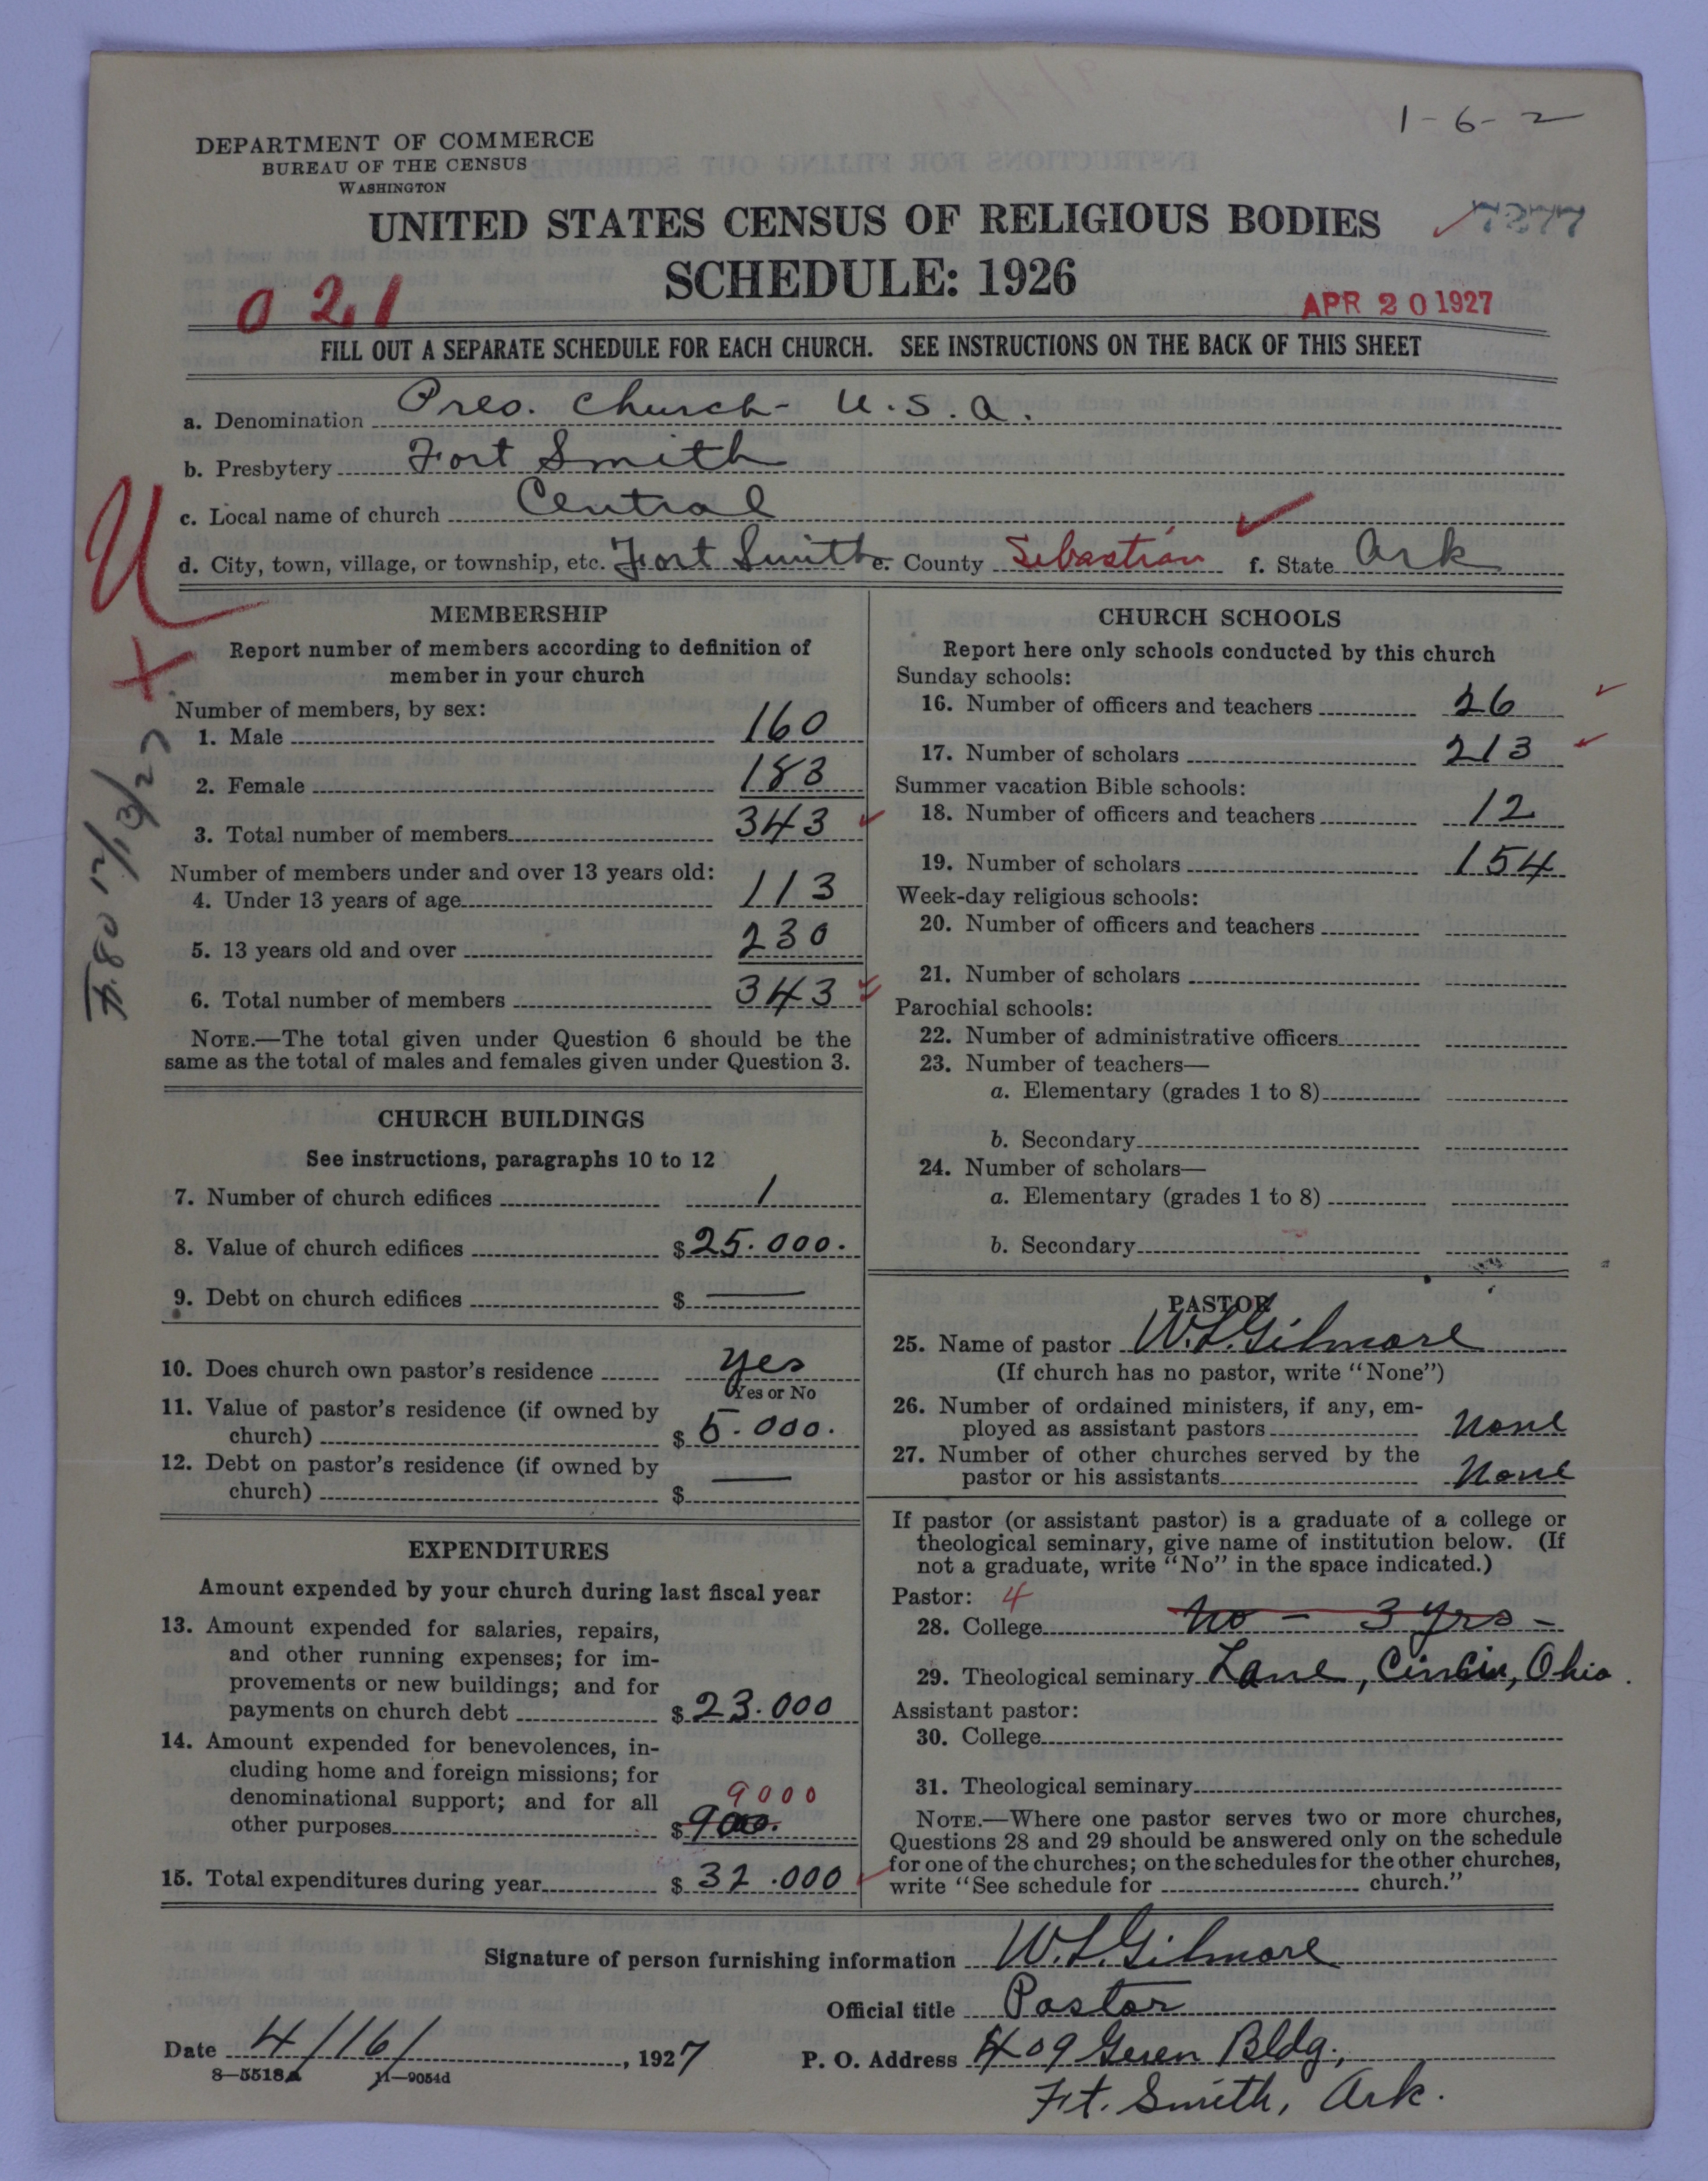 1-6-2
DEPARTMENT OF COMMERCE
BUREAU OF THE CENSUS
WASHINGTON
UNITED STATES CENSUS OF RELIGIOUS BODIES
SCHEDULE: 1926
021
APR 20 1927
FILL OUT A SEPARATE SCHEDULE FOR EACH CHURCH. SEE INSTRUCTIONS ON THE BACK OF THIS SHEET
a. Denomination Pres. Church - U.S.A.
b. Presbytery Fort Smith
c. Local name of church Central
d. City, town, village, or township, etc. Fort Smith e. County Sebastian f. State Ark
U
X
12/13/27
MEMBERSHIP
Report number of members according to definition of
member in your church
Number of members, by sex:
1. Male 160
2. Female 183
3. Total number of members 343
Number of members under and over 13 years old:
4. Under 13 years of age 113
5. 13 years old and over 230
6. Total number of members 343
NOTE.—The total given under Question 6 should be the
same as the total of males and females given under Question 3.
CHURCH BUILDINGS
See instructions, paragraphs 10 to 12
7. Number of church edifices 1
8. Value of church edifices $25.000.
9. Debt on church edifices $ —
10. Does church own pastor's residence yes
Yes or No
11. Value of pastor's residence (if owned by
church) $ 5.000.
12. Debt on pastor's residence (if owned by
church) $ —
EXPENDITURES
Amount expended by your church during last fiscal year
13. Amount expended for salaries, repairs,
and other running expenses; for im-
provements or new buildings; and for
payments on church debt $ 23.000
14. Amount expended for benevolences, in-
cluding home and foreign missions; for
denominational support; and for all 9000
other purposes $ 900.
15. Total expenditures during year $ 32.000
CHURCH SCHOOLS
Report here only schools conducted by this church
Sunday schools:
16. Number of officers and teachers 26
17. Number of scholars 213
Summer vacation Bible schools:
18. Number of officers and teachers 12
19. Number of scholars 154
Week-day religious schools:
20. Number of officers and teachers
21. Number of scholars
Parochial schools:
22. Number of administrative officers
23. Number of teachers—
a. Elementary (grades 1 to 8)
b. Secondary
24. Number of scholars—
a. Elementary (grades 1 to 8)
b. Secondary
PASTOR
25. Name of pastor W. L. Gilmore
(If church has no pastor, write "None")
26. Number of ordained ministers, if any, em-
ployed as assistant pastors None
27. Number of other churches served by the
pastor or his assistants None
If pastor (or assistant pastor) is a graduate of a college or
theological seminary, give name of institution below. (If
not a graduate, write "No" in the space indicated.)
Pastor: 4
28. College No - 3 yrs -
29. Theological seminary Lane, Cincin, Ohio.
Assistant pastor:
30. College
31. Theological seminary
NOTE.—Where one pastor serves two or more churches,
Questions 28 and 29 should be answered only on the schedule
for one of the churches; on the schedules for the other churches,
write "See schedule for church."
Signature of person furnishing information W. L. Gilmore
Official title Pastor
Date 4/16/, 1927 P. O. Address 409 Bldg.,
Ft. Smith, Ark.
8—5518a 11—9054d